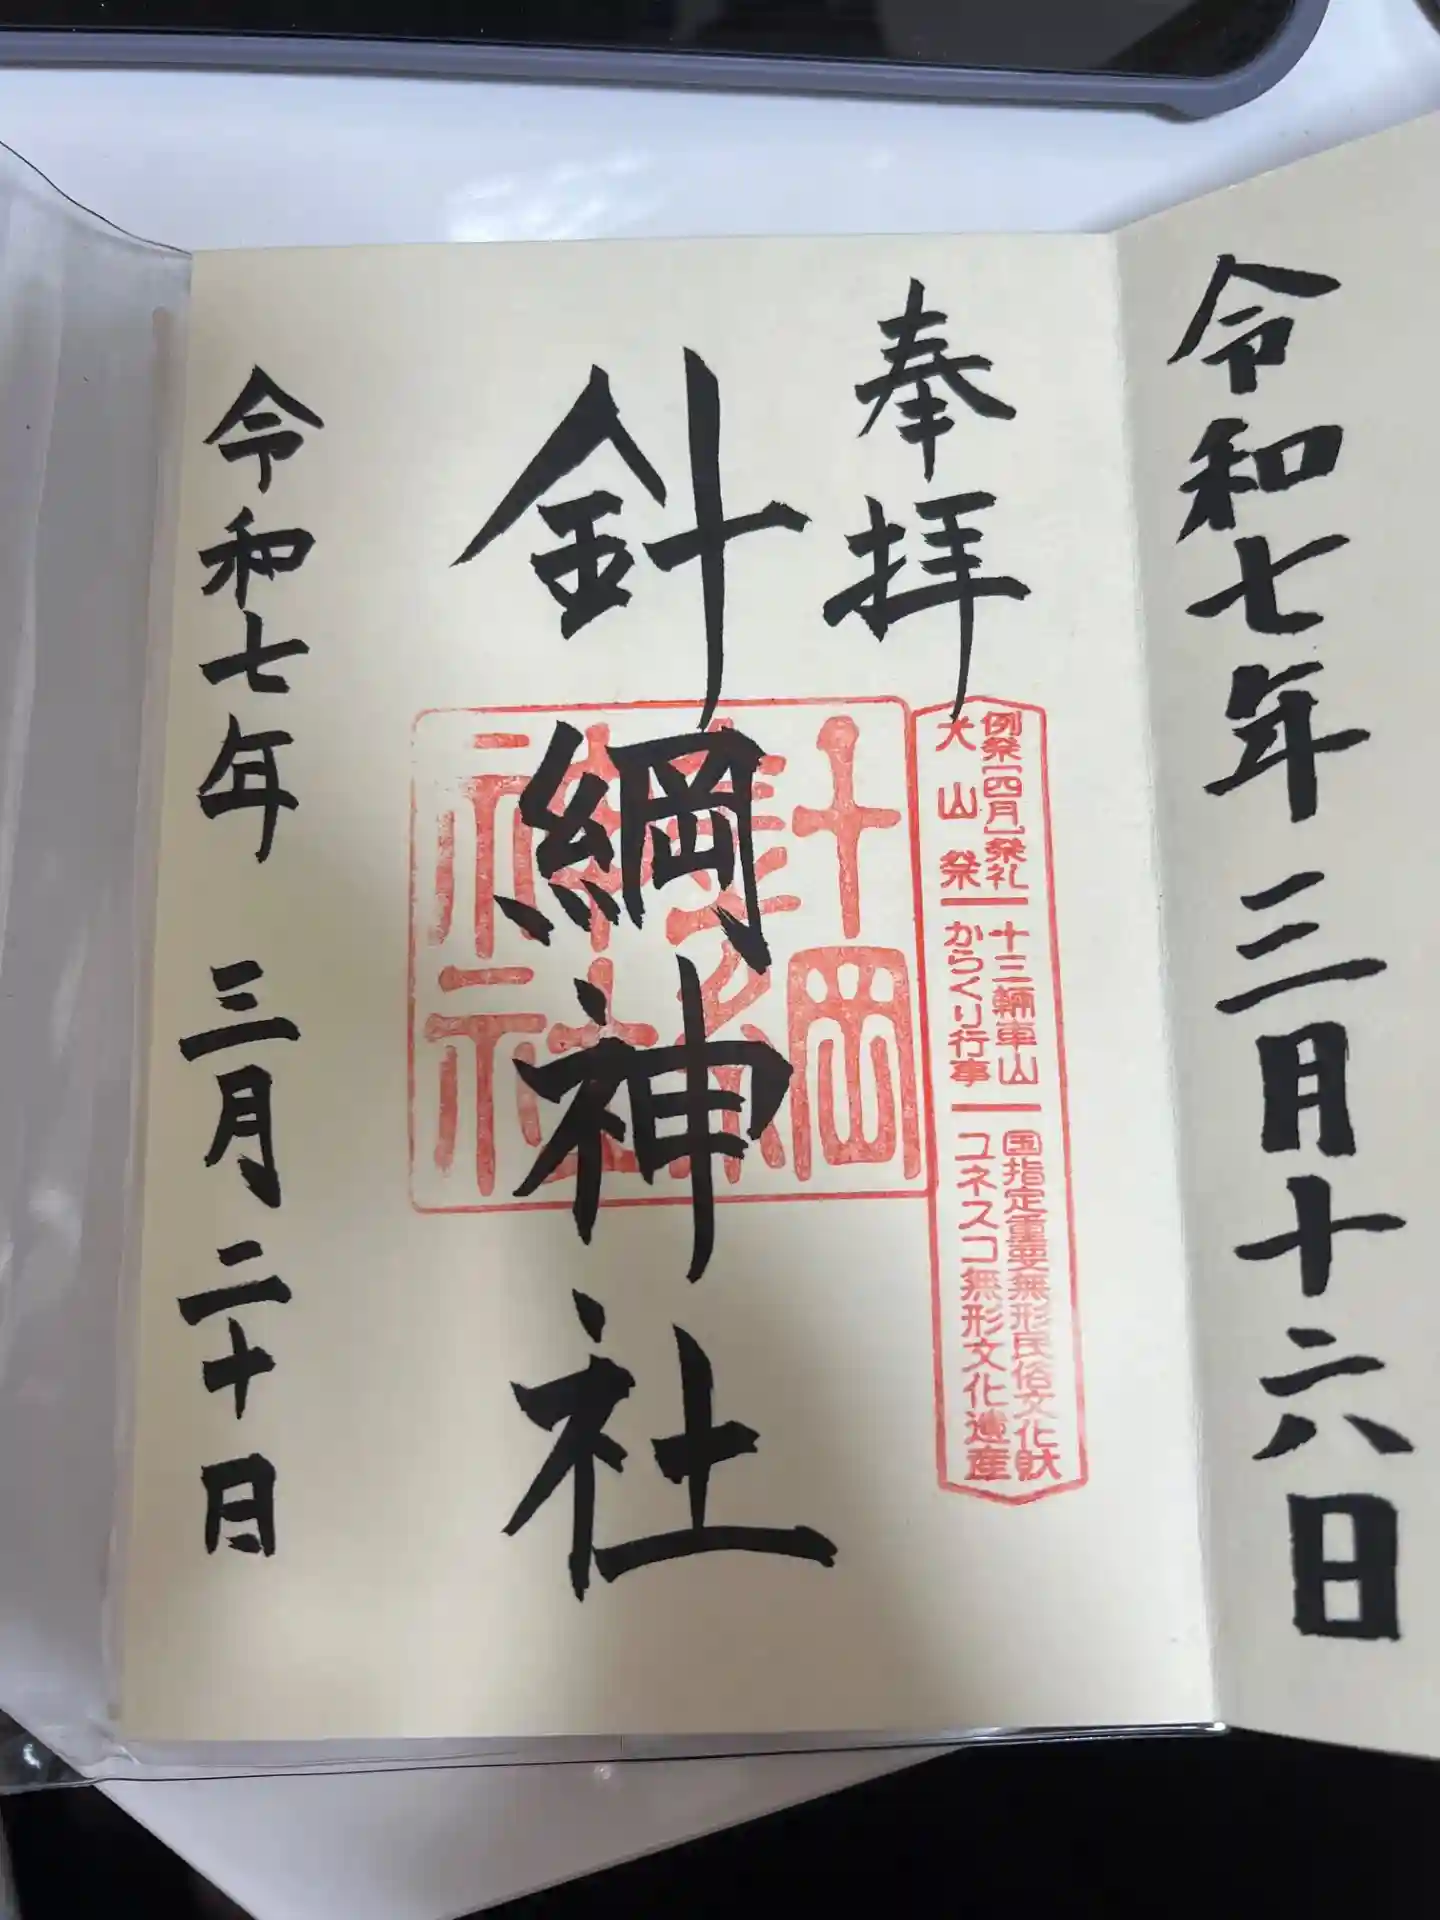 令和七年三月十六日
奉拝
例祭[四月]祭礼 十三輛車山 国指定重要無形民俗文化財
犬山祭 からくり行事 ユネスコ無形文化遺産
針綱神社
針綱神社
令和七年 三月二十日